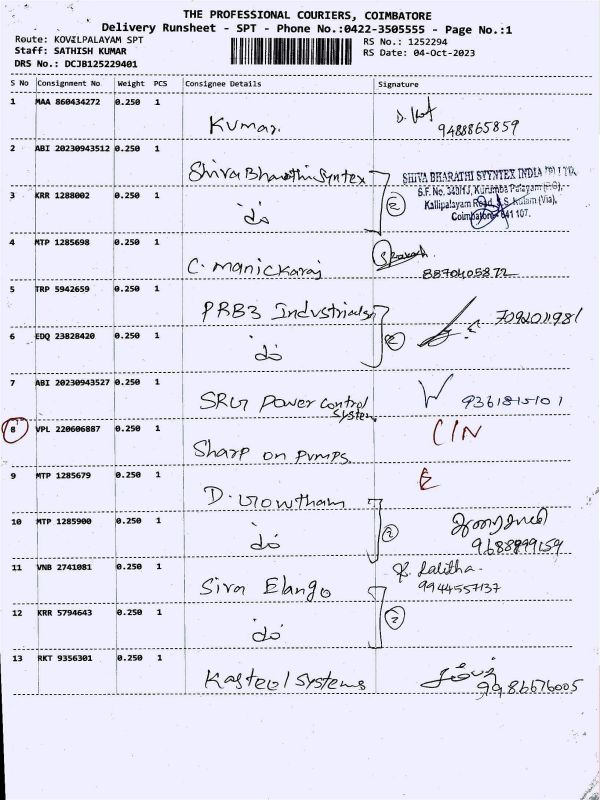 THE PROFESSIONAL COURIERS, COIMBATORE
Delivery Runsheet - SPT - Phone No.:0422-3505555 - Page No.:1
Route: KOVILPALAYAM SPT
Staff: SATHISH KUMAR
DRS No.: DCJB125229401
RS No.: 1252294
RS Date: 04-Oct-2023
S No Consignment No Weight PCS Consignee Details Signature
1 MAA 860434272 0.250 1 Kumar. 9488865859
2 ABI 20230943512 0.250 1 Shiva Bharathi Syntex
SHIVA BHARATHI SYNTEX INDIA (P) LTD.
S.F. No. 340/1J, Kurumba Palayam (P.O),
Kallipalayam Road, S.S. Kulam (Via),
Coimbatore - 641 107.
3 KRR 1288002 0.250 1 do 2
4 MTP 1285698 0.250 1 C. Manickaraj 8870405872
5 TRP 5942659 0.250 1 PRB3 Industrials 7092011981
6 EDQ 23828420 0.250 1 do 2
7 ABI 20230943527 0.250 1 SRG Power Control System 9361815101
8 VPL 220606887 0.250 1 Sharp on Pumps C/N
9 MTP 1285679 0.250 1 D. Gowtham
10 MTP 1285900 0.250 1 do 2 9688899159
11 VNB 2741081 0.250 1 Siva Elango Lalitha. 9944557137
12 KRR 5794643 0.250 1 do 2
13 RKT 9356301 0.250 1 Kasteel Systems 9986676005